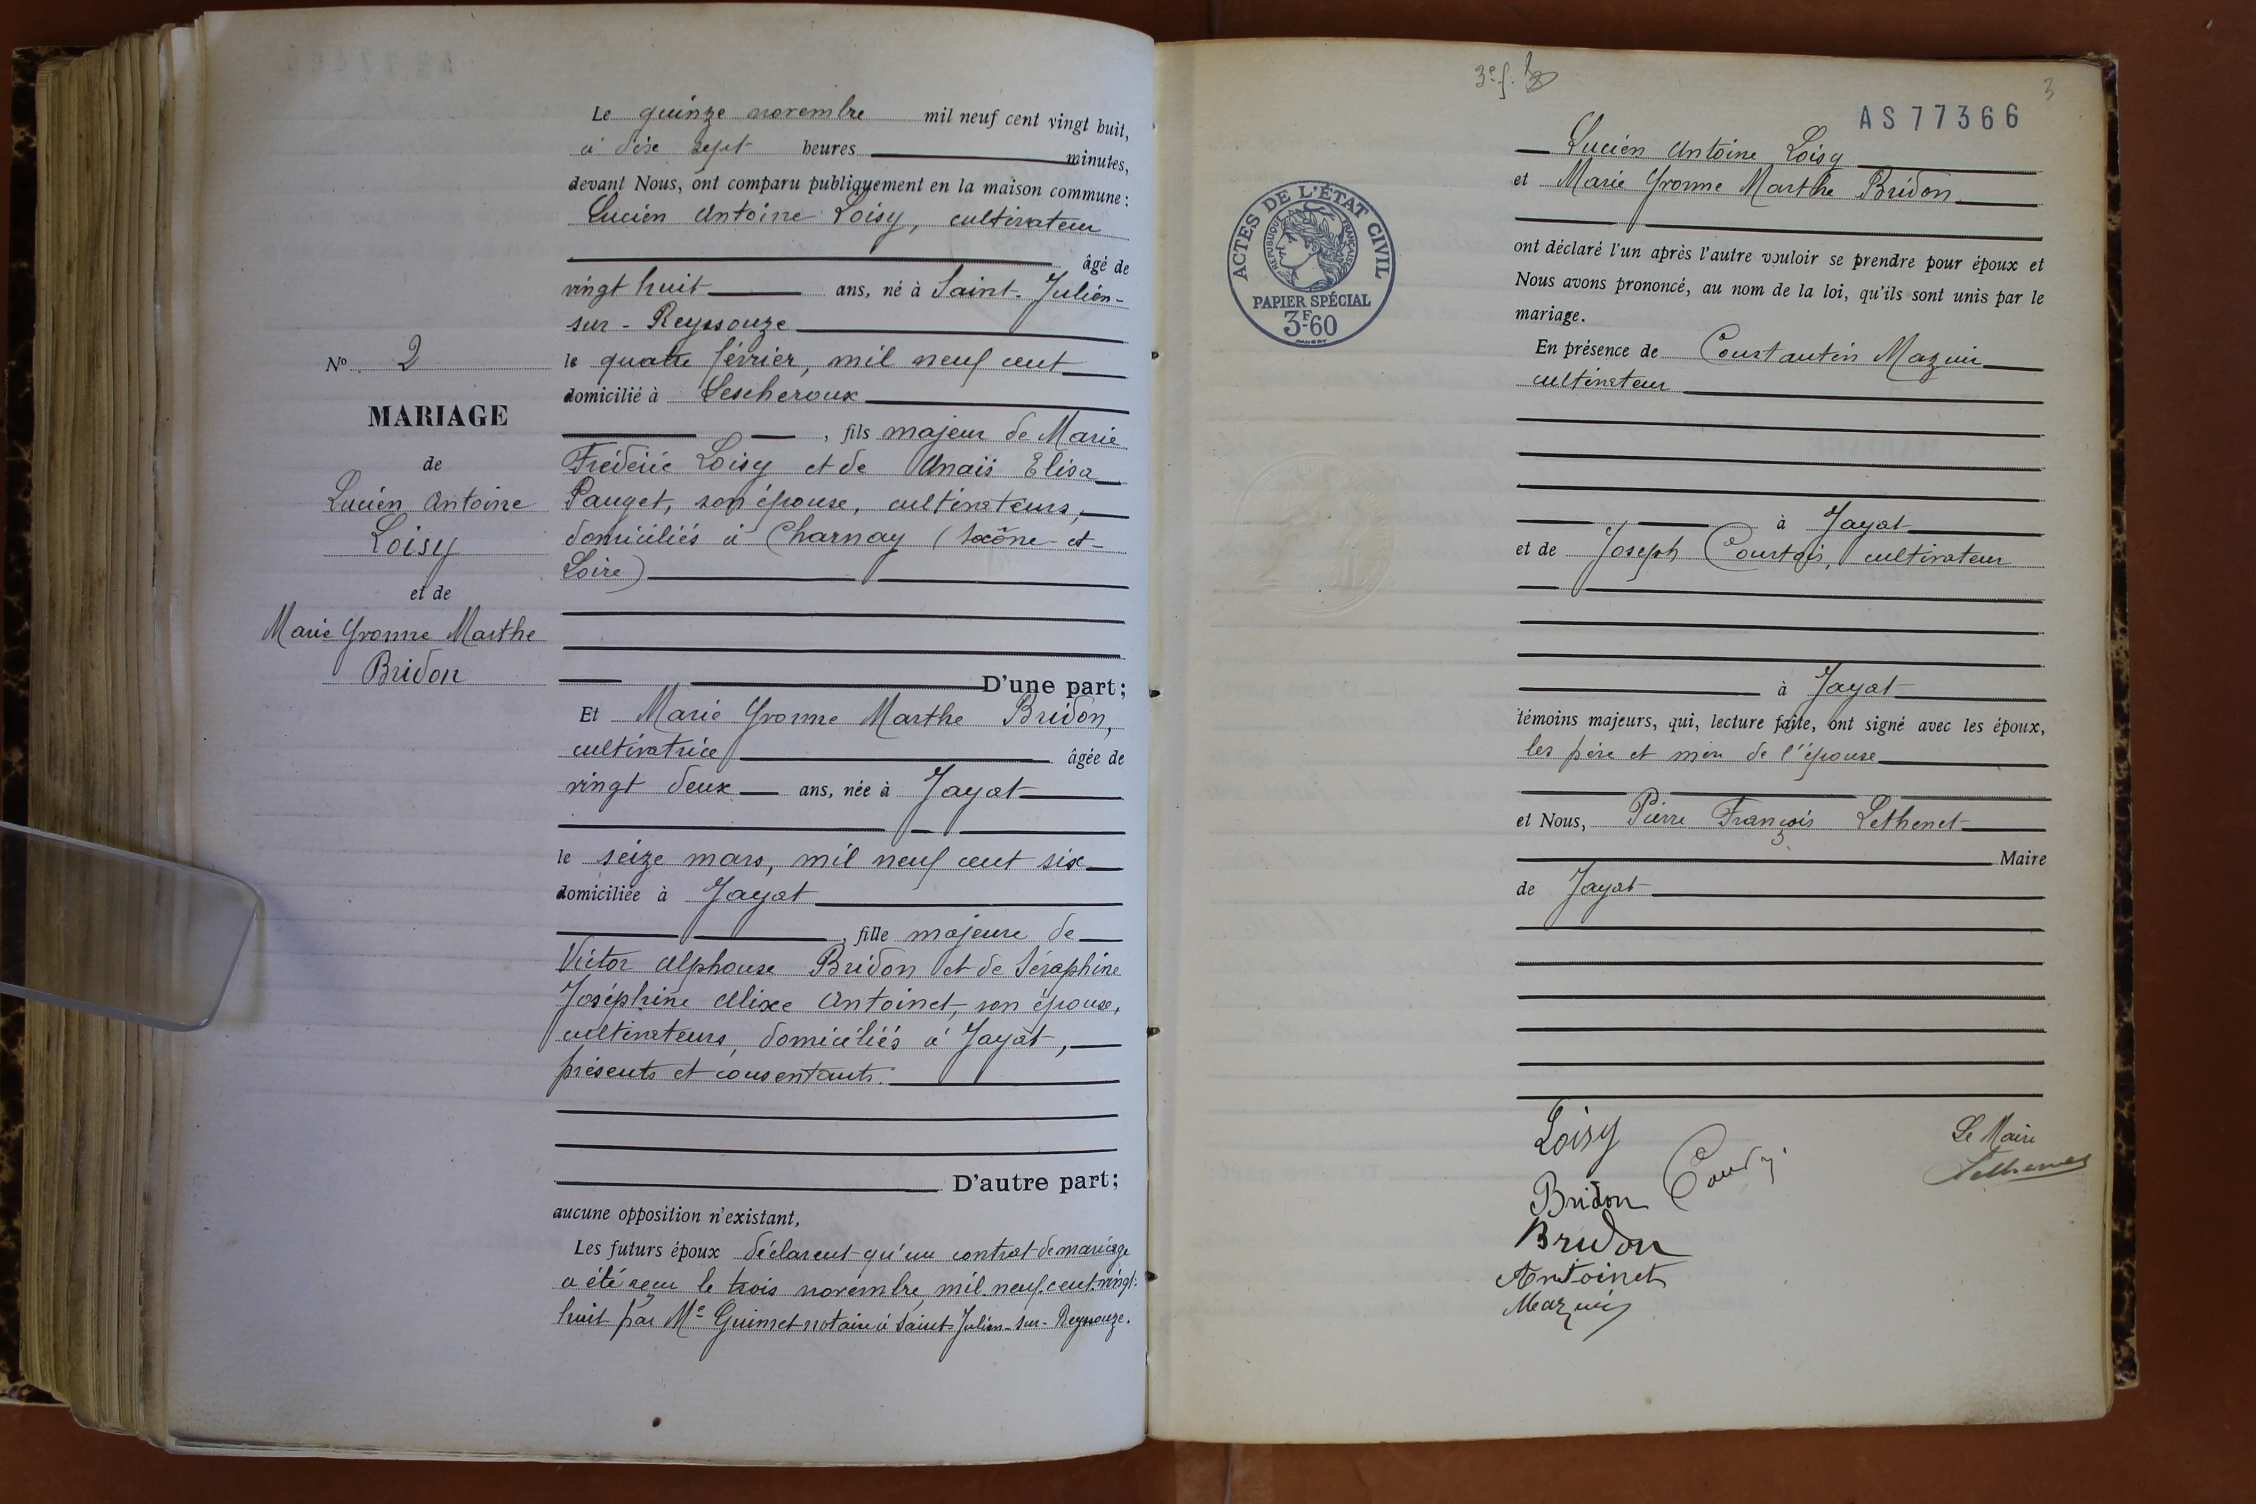 Le quinze novembre mil neuf cent vingt huit,
à dix sept heures minutes,
devant Nous, ont comparu publiquement en la maison commune :
Lucien Antoine Loisy, cultivateur
âgé de
vingt huit ans, né à Saint-Julien-
sur-Reyssouze
le quatre février, mil neuf cent
domicilié à Lescheroux
, fils majeur de Marie
Frédéric Loisy et de Anaïs Elisa
Pauget, son épouse, cultivateurs,
domiciliés à Charnay (Saône-et-
Loire)
D'une part ;
Et Marie Yvonne Marthe Bridon,
cultivatrice âgée de
vingt deux ans, née à Jayat
le seize mars, mil neuf cent six
domiciliée à Jayat
, fille majeure de
Victor Alphonse Bridon et de Séraphine
Joséphine Alixe Antoinet, son épouse,
cultivateurs, domiciliés à Jayat,
présents et consentants.
D'autre part ;
aucune opposition n'existant,
Les futurs époux déclarent qu'un contrat de mariage
a été reçu le trois novembre mil neuf cent vingt-
huit par Me Guimet notaire à Saint-Julien-sur-Reyssouze.
No 2
MARIAGE
de
Lucien Antoine
Loisy
et de
Marie Yvonne Marthe
Bridon
3e f.
3
AS77366
ACTES DE L'ÉTAT CIVIL
RÉPUBLIQUE FRANÇAISE
PAPIER SPÉCIAL
3F60
Lucien Antoine Loisy
et Marie Yvonne Marthe Bridon
ont déclaré l'un après l'autre vouloir se prendre pour époux et
Nous avons prononcé, au nom de la loi, qu'ils sont unis par le
mariage.
En présence de Constantin Mazuir
cultivateur
à Jayat
et de Joseph Courtois, cultivateur
à Jayat
témoins majeurs, qui, lecture faite, ont signé avec les époux,
les père et mère de l'épouse
et Nous, Pierre François Lethenet
Maire
de Jayat
Loisy
Bridon
Bridon
Antoinet
Mazuir
Le Maire
Lethenet